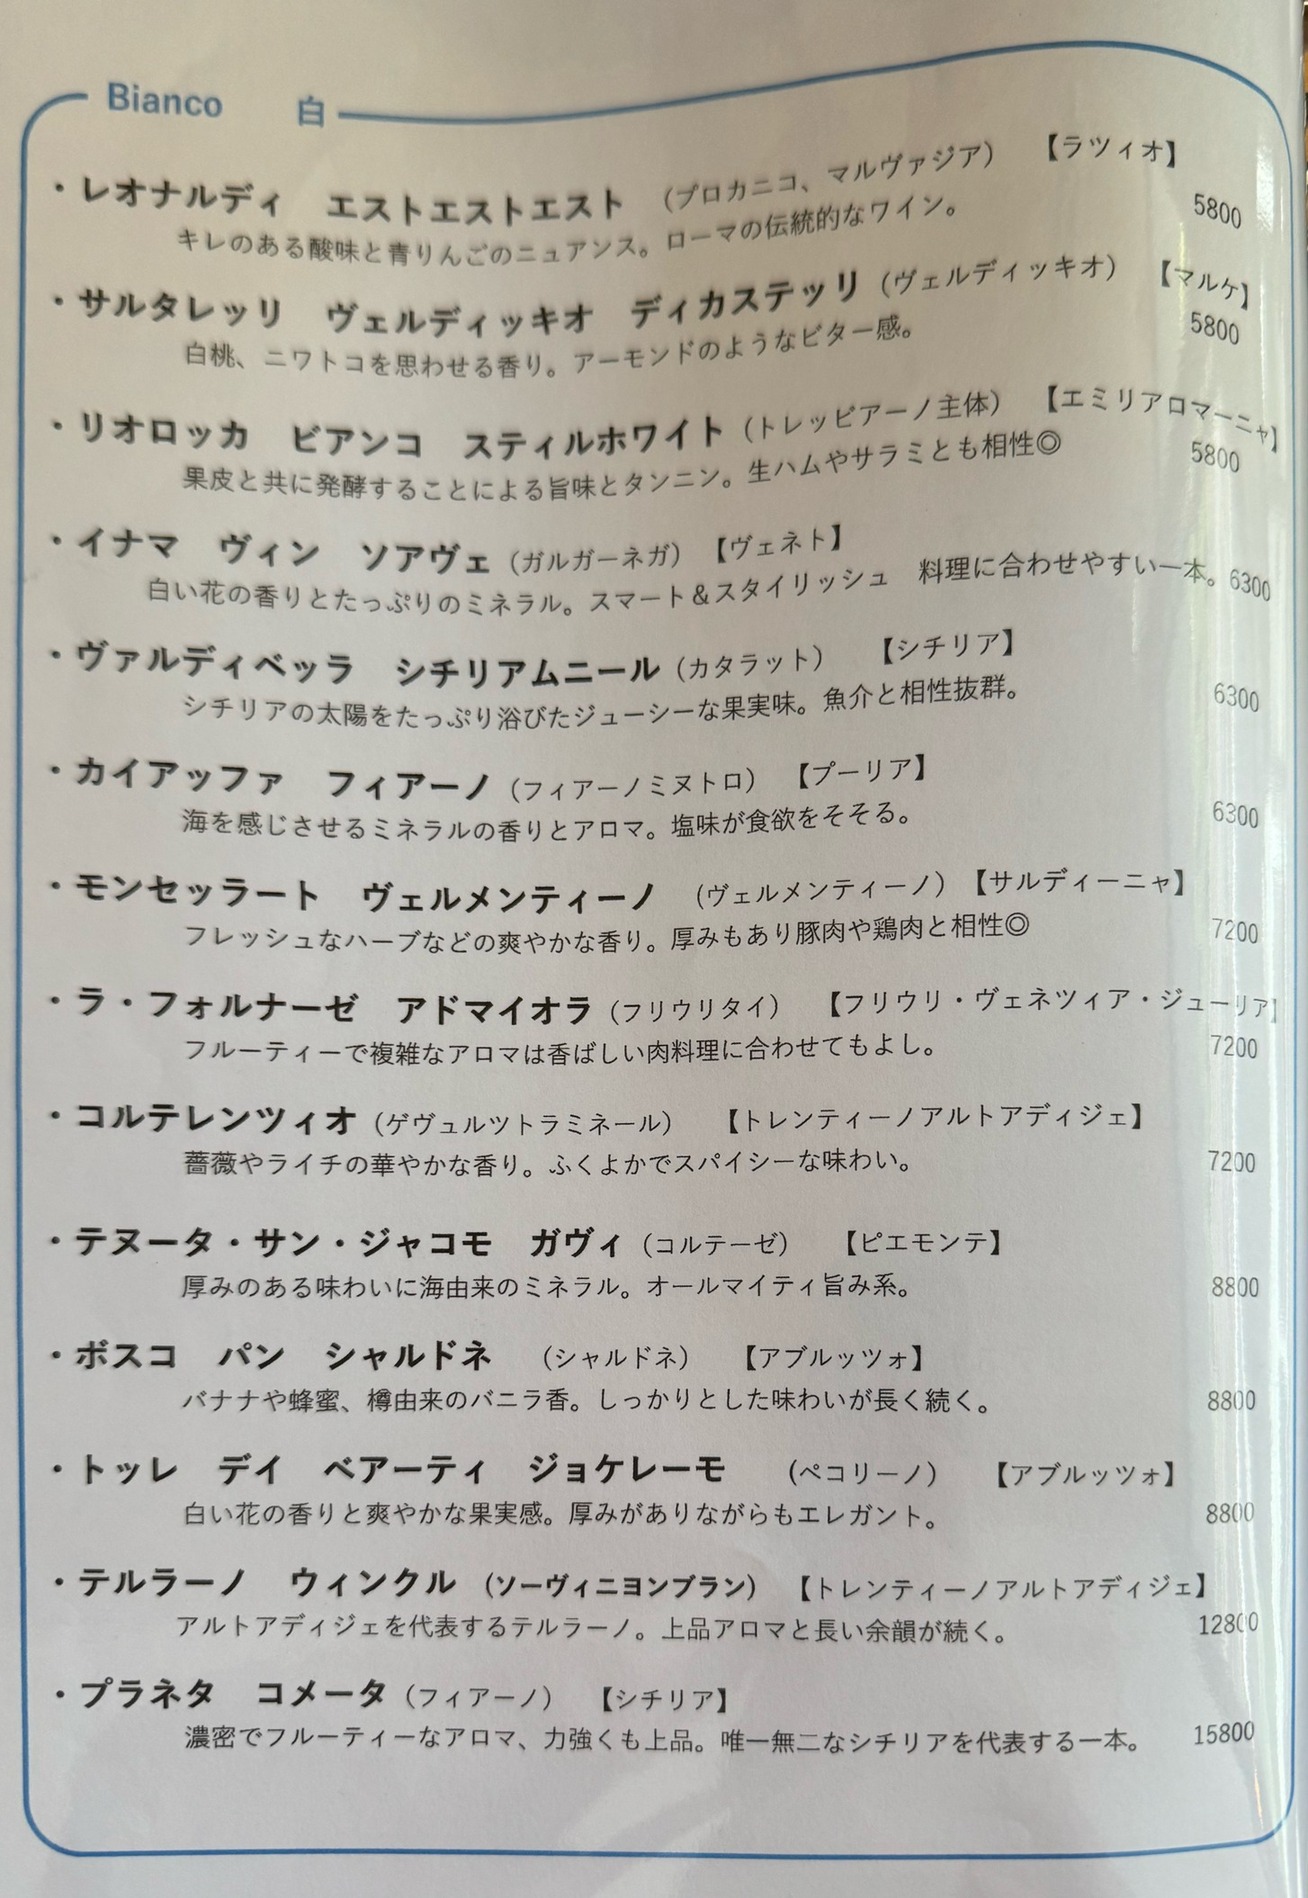 Bianco 白
・レオナルディ エストエストエスト （プロカニコ、マルヴァジア） 【ラツィオ】
キレのある酸味と青りんごのニュアンス。ローマの伝統的なワイン。 5800
・サルタレッリ ヴェルディッキオ ディカステッリ（ヴェルディッキオ） 【マルケ】
白桃、ニワトコを思わせる香り。アーモンドのようなビター感。 5800
・リオロッカ ビアンコ スティルホワイト（トレッビアーノ主体） 【エミリアロマーニャ】
果皮と共に発酵することによる旨味とタンニン。生ハムやサラミとも相性◎ 5800
・イナマ ヴィン ソアヴェ（ガルガーネガ） 【ヴェネト】
白い花の香りとたっぷりのミネラル。スマート＆スタイリッシュ 料理に合わせやすい一本。 6300
・ヴァルディベッラ シチリアムニール（カタラット） 【シチリア】
シチリアの太陽をたっぷり浴びたジューシーな果実味。魚介と相性抜群。 6300
・カイアッファ フィアーノ（フィアーノミヌトロ） 【プーリア】
海を感じさせるミネラルの香りとアロマ。塩味が食欲をそそる。 6300
・モンセッラート ヴェルメンティーノ （ヴェルメンティーノ）【サルディーニャ】
フレッシュなハーブなどの爽やかな香り。厚みもあり豚肉や鶏肉と相性◎ 7200
・ラ・フォルナーゼ アドマイオラ（フリウリタイ） 【フリウリ・ヴェネツィア・ジューリア】
フルーティーで複雑なアロマは香ばしい肉料理に合わせてもよし。 7200
・コルテレンツィオ（ゲヴュルツトラミネール） 【トレンティーノアルトアディジェ】
薔薇やライチの華やかな香り。ふくよかでスパイシーな味わい。 7200
・テヌータ・サン・ジャコモ ガヴィ（コルテーゼ） 【ピエモンテ】
厚みのある味わいに海由来のミネラル。オールマイティ旨み系。 8800
・ボスコ パン シャルドネ （シャルドネ） 【アブルッツォ】
バナナや蜂蜜、樽由来のバニラ香。しっかりとした味わいが長く続く。 8800
・トッレ デイ ベアーティ ジョケレーモ （ペコリーノ） 【アブルッツォ】
白い花の香りと爽やかな果実感。厚みがありながらもエレガント。 8800
・テルラーノ ウィンクル （ソーヴィニヨンブラン） 【トレンティーノアルトアディジェ】
アルトアディジェを代表するテルラーノ。上品アロマと長い余韻が続く。 12800
・プラネタ コメータ（フィアーノ） 【シチリア】
濃密でフルーティーなアロマ、力強くも上品。唯一無二なシチリアを代表する一本。 15800